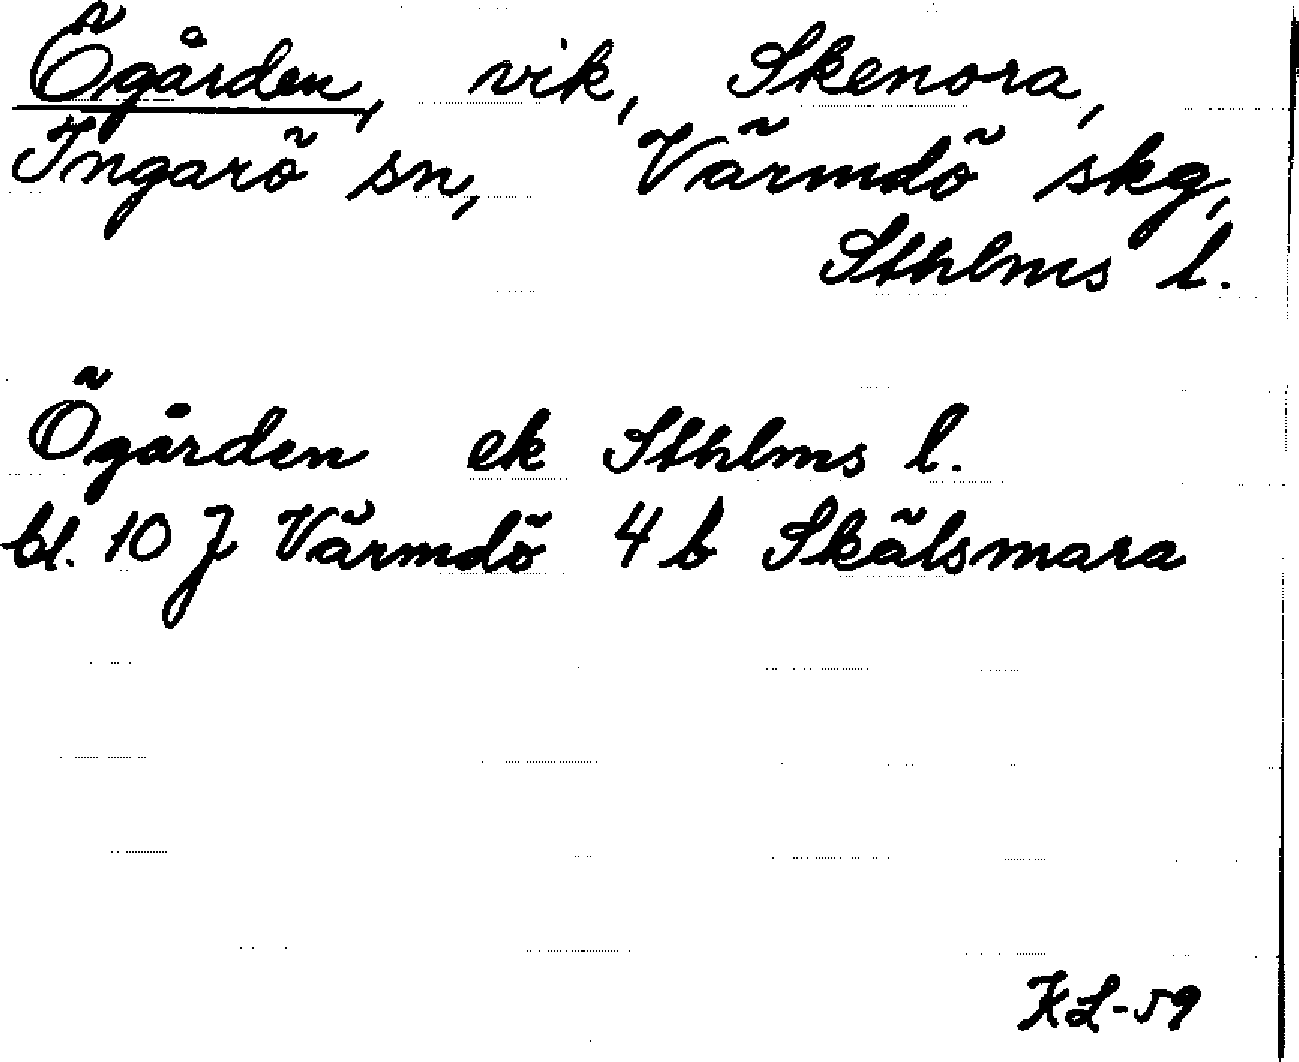 Ögården, vik, Skenora,
Ingarö sn, Värmdö skg,
Sthlms l.
Ögården ek Sthlms l.
bl. 10 J Värmdö 4 b Skälsmara
KL-59